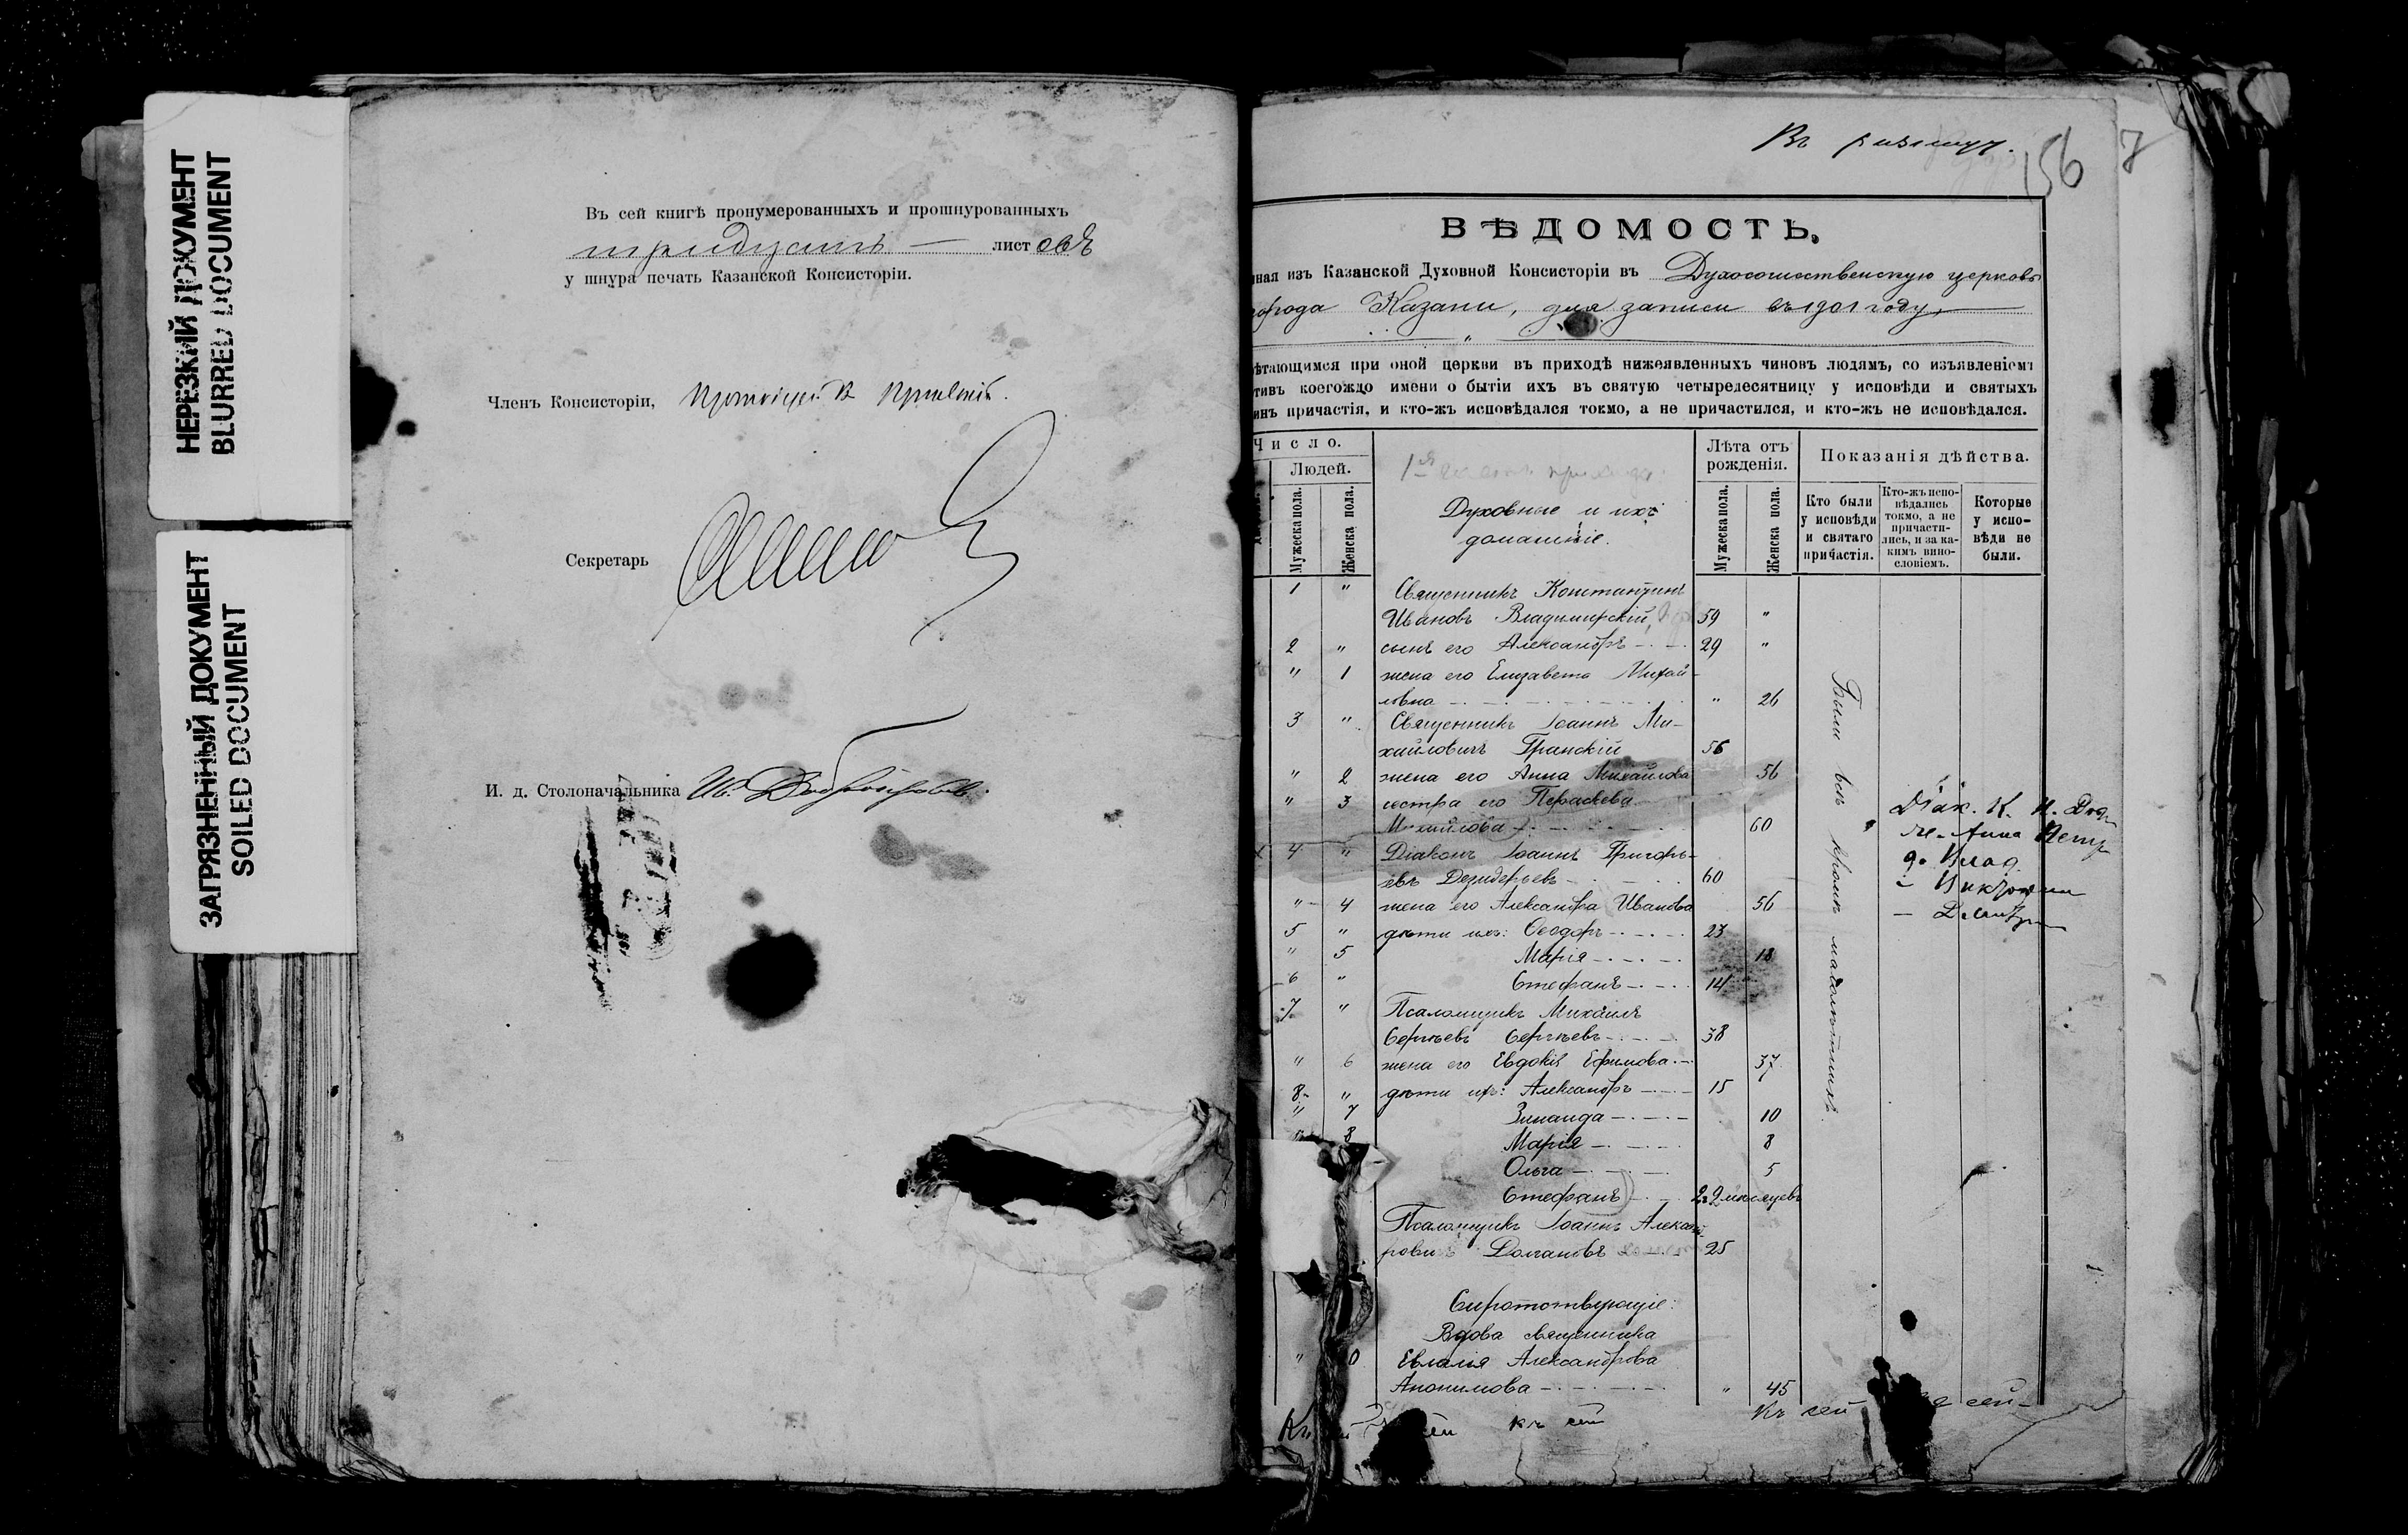 НЕРЕЗКИЙ ДОКУМЕНТ
BLURRED DOCUMENT
ЗАГРЯЗНЕННЫЙ ДОКУМЕНТ
SOILED DOCUMENT
Въ сей книгѣ пронумерованныхъ и прошнурованныхъ
тридцать — листовъ
у шнура печать Казанской Консисторіи.
Членъ Консисторіи, Протоіерей
Секретарь
И. д. Столоначальника Ив.
Въ ризницу.
156 7
ВѢДОМОСТЬ,
ная изъ Казанской Духовной Консисторіи въ Духосошественскую церковь
города Казани, для записи въ 1901 году,
ѣтающимся при оной церкви въ приходѣ нижеявленныхъ чиновъ людямъ, со изъявленіемъ
тивъ коегождо имени о бытіи ихъ въ святую четыредесятницу у исповѣди и святыхъ
инъ причастія, и кто-жъ исповѣдался токмо, а не причастился, и кто-жъ не исповѣдался.
Число.
Людей.
Мужеска пола.
Женска пола.
1-я часть прихода.
Духовные и ихъ
домашніе.
Лѣта отъ рожденія.
Мужеска пола.
Женска пола.
Показанія дѣйства.
Кто были у исповѣди и святаго причастія.
Кто-жъ исповѣдались токмо, а не причастились, и за какимъ винословіемъ.
Которые у исповѣди не были.
1 " Священникъ Константинъ
Ивановъ Владимирскій, 59 "
2 " сынъ его Александръ 29 "
" 1 жена его Елизавета Михай-
ловна " 26
3 " Священникъ Іоаннъ Ми-
хайловичъ Гранскій 56
" 2 жена его Анна Михайлова 56
" 3 сестра его Параскева
Михайлова 60
4 " Діаконъ Іоаннъ Григорь-
евъ Дезидерьевъ 60
" 4 жена его Александра Иванова 56
5 " дѣти ихъ: Ѳеодоръ 23
" 5 Марія 18
6 " Стефанъ 14
7 " Псаломщикъ Михаилъ
Сергѣевъ Сергѣевъ 38
" 6 жена его Евдокія Ефимова 37
8 " дѣти ихъ: Александръ 15
" 7 Зинаида 10
" 8 Марія 8
Ольга 5
Стефанъ 2 мѣсяцевъ
Псаломщикъ Іоаннъ Александ-
рови Долгановъ 25
Сиротствующіе:
Вдова священника
" 0 Евлалія Александрова
Анонимова " 45
Были всѣ кромѣ малолѣтнихъ.
Діак. К. И.
Анна Петр
Влад
Викторин
Димитр
къ сей
Къ сей
сей